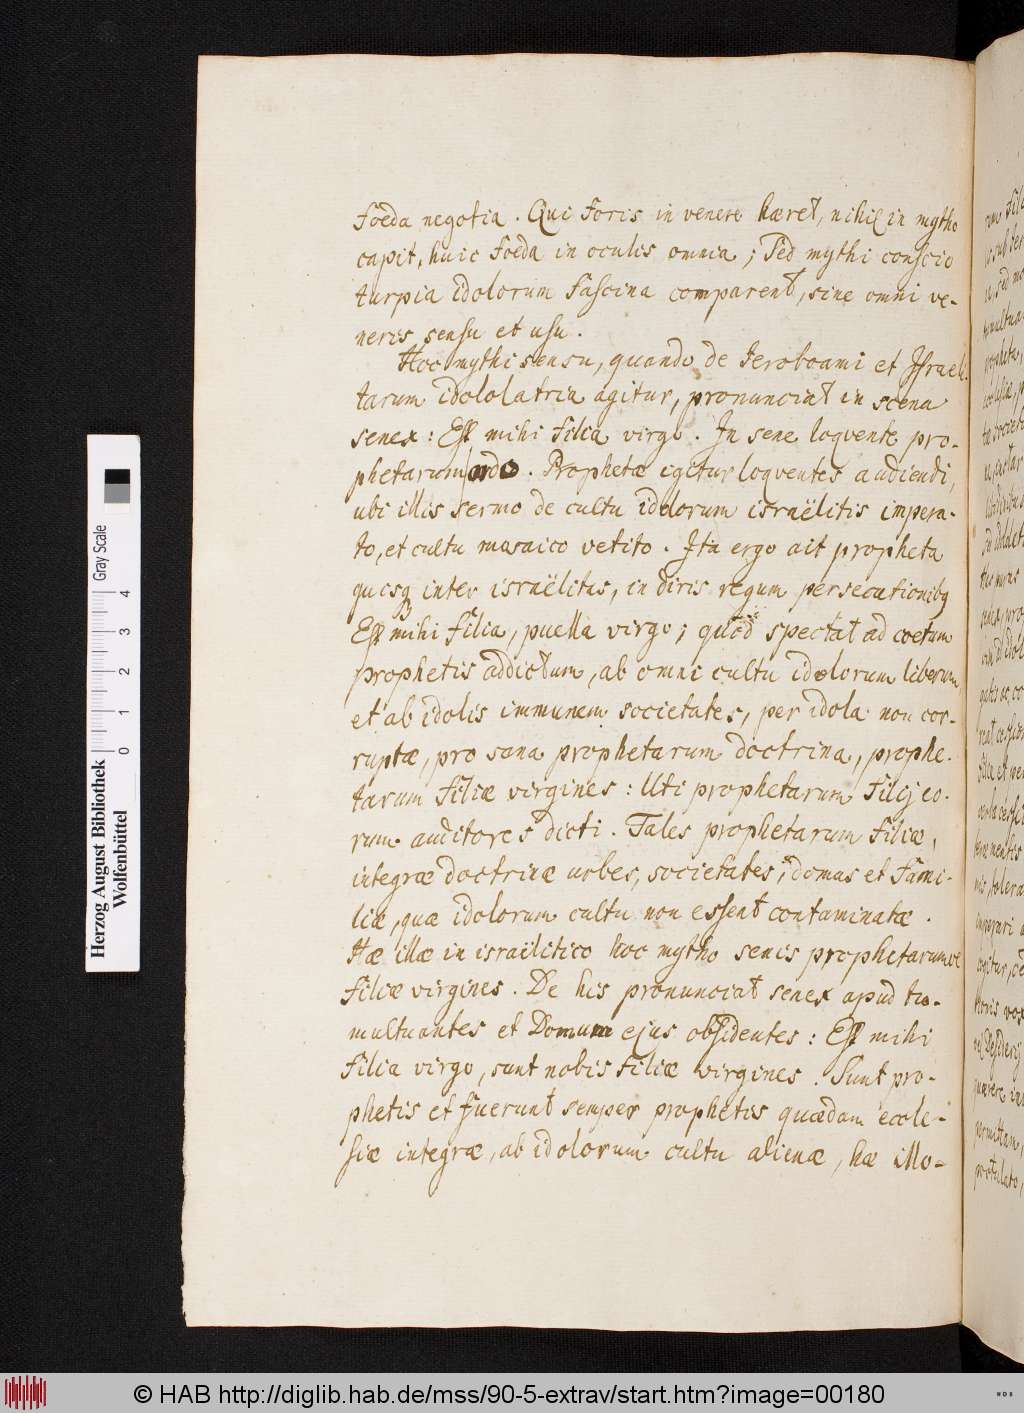 foeda negotia. Qui foris in venere hæret, nihil in mytho
capit, huic foeda in oculis omnia; sed mythi conscio
turpia idolorum fascina comparent, sine omni ve-
neris sensu et usu.
Hoc mythi sensu, quando de Jeroboami et Israeli-
tarum idololatria agitur, pronunciat in scena
senex: Est mihi filia virgo. In sene loqvente pro-
phetarum ordo. Prophetæ igitur loqventes audiendi,
ubi illis sermo de cultu idolorum israëlitis impera-
to, et cultu mosaico vetito. Ita ergo ait propheta
quisq inter israëlitas, in diris regum persecutionibq
Est mihi filia, puella virgo; quod spectat ad coetum
prophetis addictum, ab omni cultu idolorum liberum,
et ab idolis immunem societates, per idola non cor-
ruptæ, pro sana prophetarum doctrina, prophe-
tarum filiæ virgines: Uti prophetarum filij eo-
rum auditores dicti. Tales prophetarum filiæ,
integræ doctrinæ urbes, societates, domus et fami-
liæ, quæ idolorum cultu non essent contaminatæ.
Hæ illæ in israëlitico hoc mytho senis prophetarumve
filiæ virgines. De his pronunciat senex apud tu-
multuantes et Domum ejus obsidentes: Est mihi
filia virgo, sunt nobis filiæ virgines. Sunt pro-
phetis et fuerunt semper prophetis quædam eccle-
siæ integræ, ab idolorum cultu alienæ, hæ illo-
Herzog August Bibliothek
Wolfenbüttel
Gray Scale
0 1 2 3 4
© HAB http://diglib.hab.de/mss/90-5-extrav/start.htm?image=00180